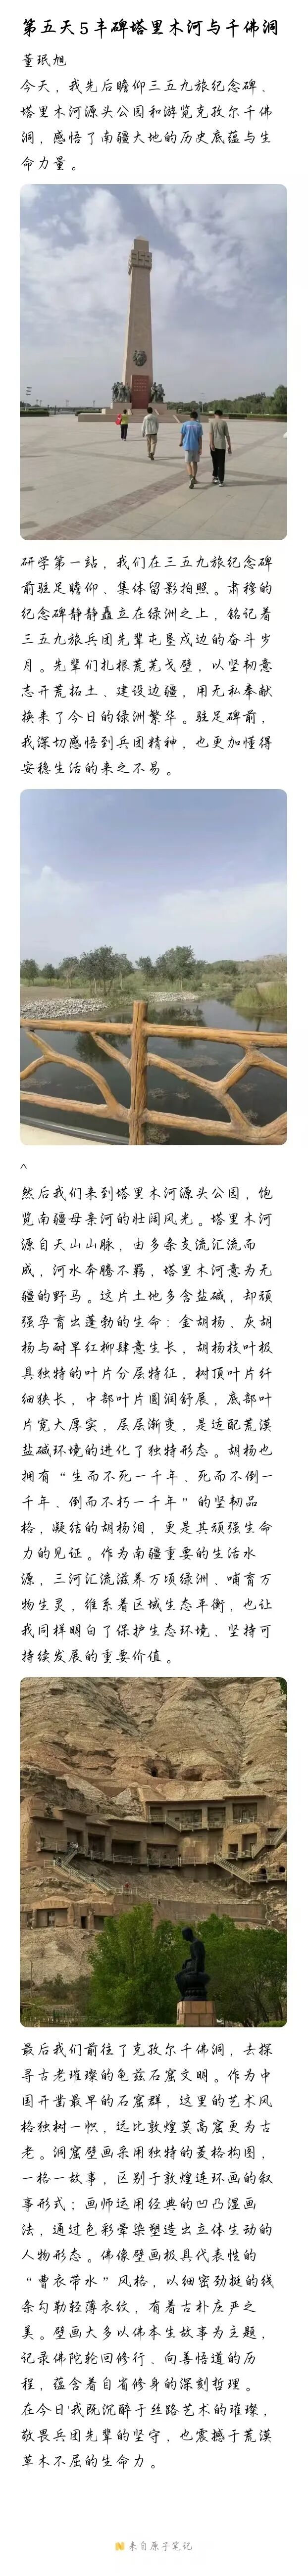 第五天5丰碑塔里木河与千佛洞
董珉旭
今天，我先后瞻仰三五九旅纪念碑、
塔里木河源头公园和游览克孜尔千佛
洞，感悟了南疆大地的历史底蕴与生
命力量。
研学第一站，我们在三五九旅纪念碑
前驻足瞻仰、集体留影拍照。肃穆的
纪念碑静静矗立在绿洲之上，铭记着
三五九旅兵团先辈屯垦戍边的奋斗岁
月。先辈们扎根荒芜戈壁，以坚韧意
志开荒拓土、建设边疆，用无私奉献
换来了今日的绿洲繁华。驻足碑前，
我深切感悟到兵团精神，也更加懂得
安稳生活的来之不易。
^
然后我们来到塔里木河源头公园，饱
览南疆母亲河的壮阔风光。塔里木河
源自天山山脉，由多条支流汇流而
成，河水奔腾不羁，塔里木河意为无
疆的野马。这片土地多含盐碱，却顽
强孕育出蓬勃的生命：金胡杨、灰胡
杨与耐旱红柳肆意生长，胡杨枝叶极
具独特的叶片分层特征，树顶叶片纤
细狭长，中部叶片圆润舒展，底部叶
片宽大厚实，层层渐变，是适配荒漠
盐碱环境的进化了独特形态。胡杨也
拥有“生而不死一千年、死而不倒一
千年、倒而不朽一千年”的坚韧品
格，凝结的胡杨泪，更是其顽强生命
力的见证。作为南疆重要的生活水
源，三河汇流滋养万顷绿洲、哺育万
物生灵，维系着区域生态平衡，也让
我同样明白了保护生态环境、坚持可
持续发展的重要价值。
最后我们前往了克孜尔千佛洞，去探
寻古老璀璨的龟兹石窟文明。作为中
国开凿最早的石窟群，这里的艺术风
格独树一帜，远比敦煌莫高窟更为古
老。洞窟壁画采用独特的菱格构图，
一格一故事，区别于敦煌连环画的叙
事形式；画师运用经典的凹凸湿画
法，通过色彩晕染塑造出立体生动的
人物形态。佛像壁画极具代表性的
“曹衣带水”风格，以细密劲挺的线
条勾勒轻薄衣纹，有着古朴庄严之
美。壁画大多以佛本生故事为主题，
记录佛陀轮回修行、向善悟道的历
程，蕴含着自省修身的深刻哲理。
在今日'我既沉醉于丝路艺术的璀璨，
敬畏兵团先辈的坚守，也震撼于荒漠
草木不屈的生命力。
来自原子笔记